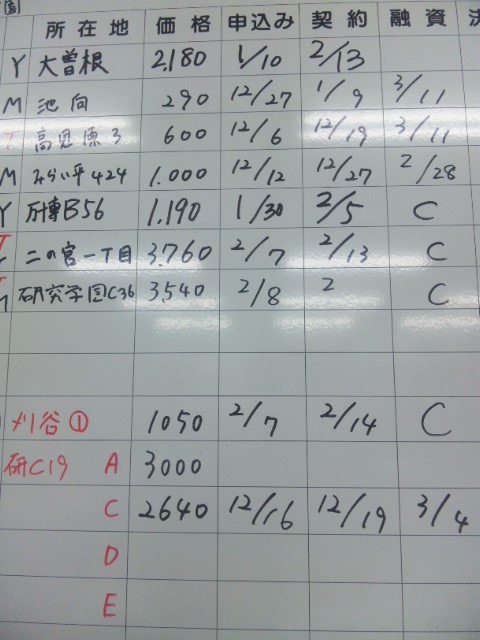 所在地 価格 申込み 契約 融資 決
Y 大曽根 2,180 1/10 2/13
M 池向 290 12/27 1/9 3/11
T 高見原3 600 12/6 12/19 3/11
M みらい平424 1.000 12/12 12/27 2/28
Y B56 1.190 1/30 2/5 C
T 二の宮一丁目 3,760 2/7 2/13 C
T M 研究学園C36 3,540 2/8 2 C
刈谷① 1050 2/7 2/14 C
研C19 A 3000
C 2640 12/16 12/19 3/4
D
E